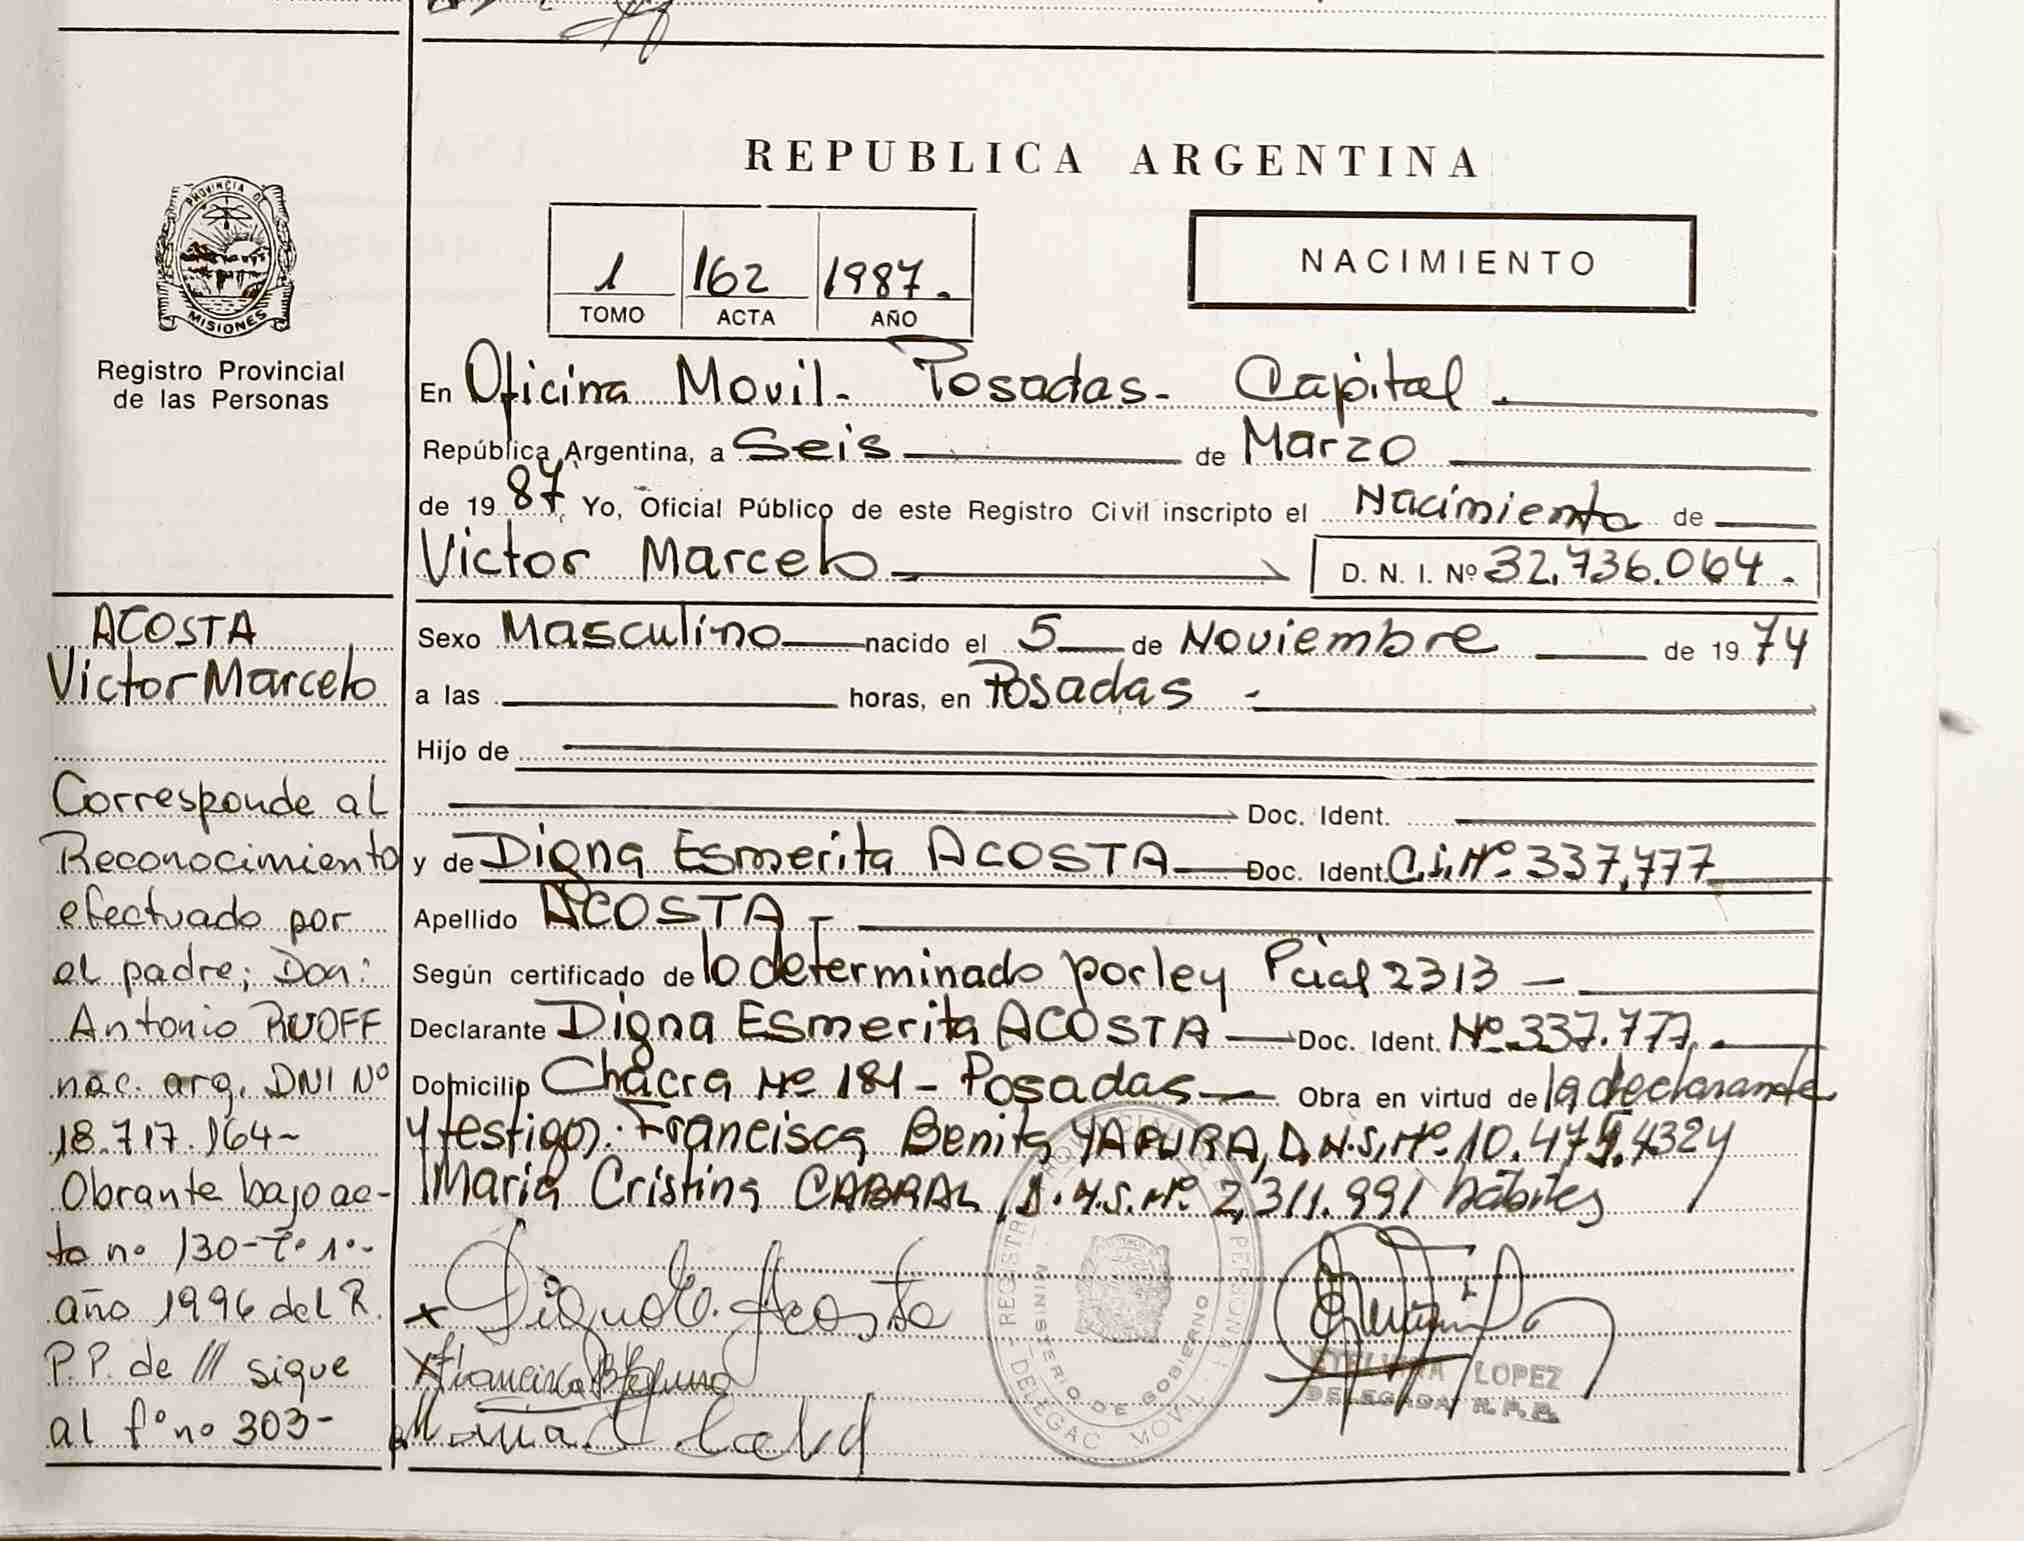 REPUBLICA ARGENTINA
PROVINCIA DE
MISIONES
Registro Provincial
de las Personas
1 162 1987.
TOMO ACTA AÑO
NACIMIENTO
En Oficina Movil - Posadas - Capital.
República Argentina, a Seis de Marzo
de 1987, Yo, Oficial Público de este Registro Civil inscripto el Nacimiento de
Victor Marcelo D. N. I. Nº 32.736.064.
Sexo Masculino nacido el 5 de Noviembre de 1974
a las horas, en Posadas -
Hijo de
Doc. Ident.
y de Digna Esmerita ACOSTA Doc. Ident. C.I. Nº 337.777
Apellido ACOSTA -
Según certificado de lo determinado por ley Pcial 2313 -
Declarante Digna Esmerita ACOSTA Doc. Ident. Nº 337.777.
Domicilio Chacra Nº 181 - Posadas Obra en virtud de la declarante
y testigos: Francisca Benita YAPURA, D.N.I. Nº 10.475.432 y
Maria Cristina CABRAL, D.N.I. Nº 2.311.991 hábiles
x Digna E. Acosta
x Francisca B
Maria C
LOPEZ
DELEGADA R.P.P.
MINISTERIO DE GOBIERNO
DELEGAC MOVIL
ACOSTA
Victor Marcelo
Corresponde al
Reconocimiento
efectuado por
el padre; Don:
Antonio RUOFF
nac. arg. DNI Nº
18.717.164-
Obrante bajo ac-
ta nº 130-Tº 1º-
año 1996 del R.
P.P. de /// sigue
al fº nº 303-